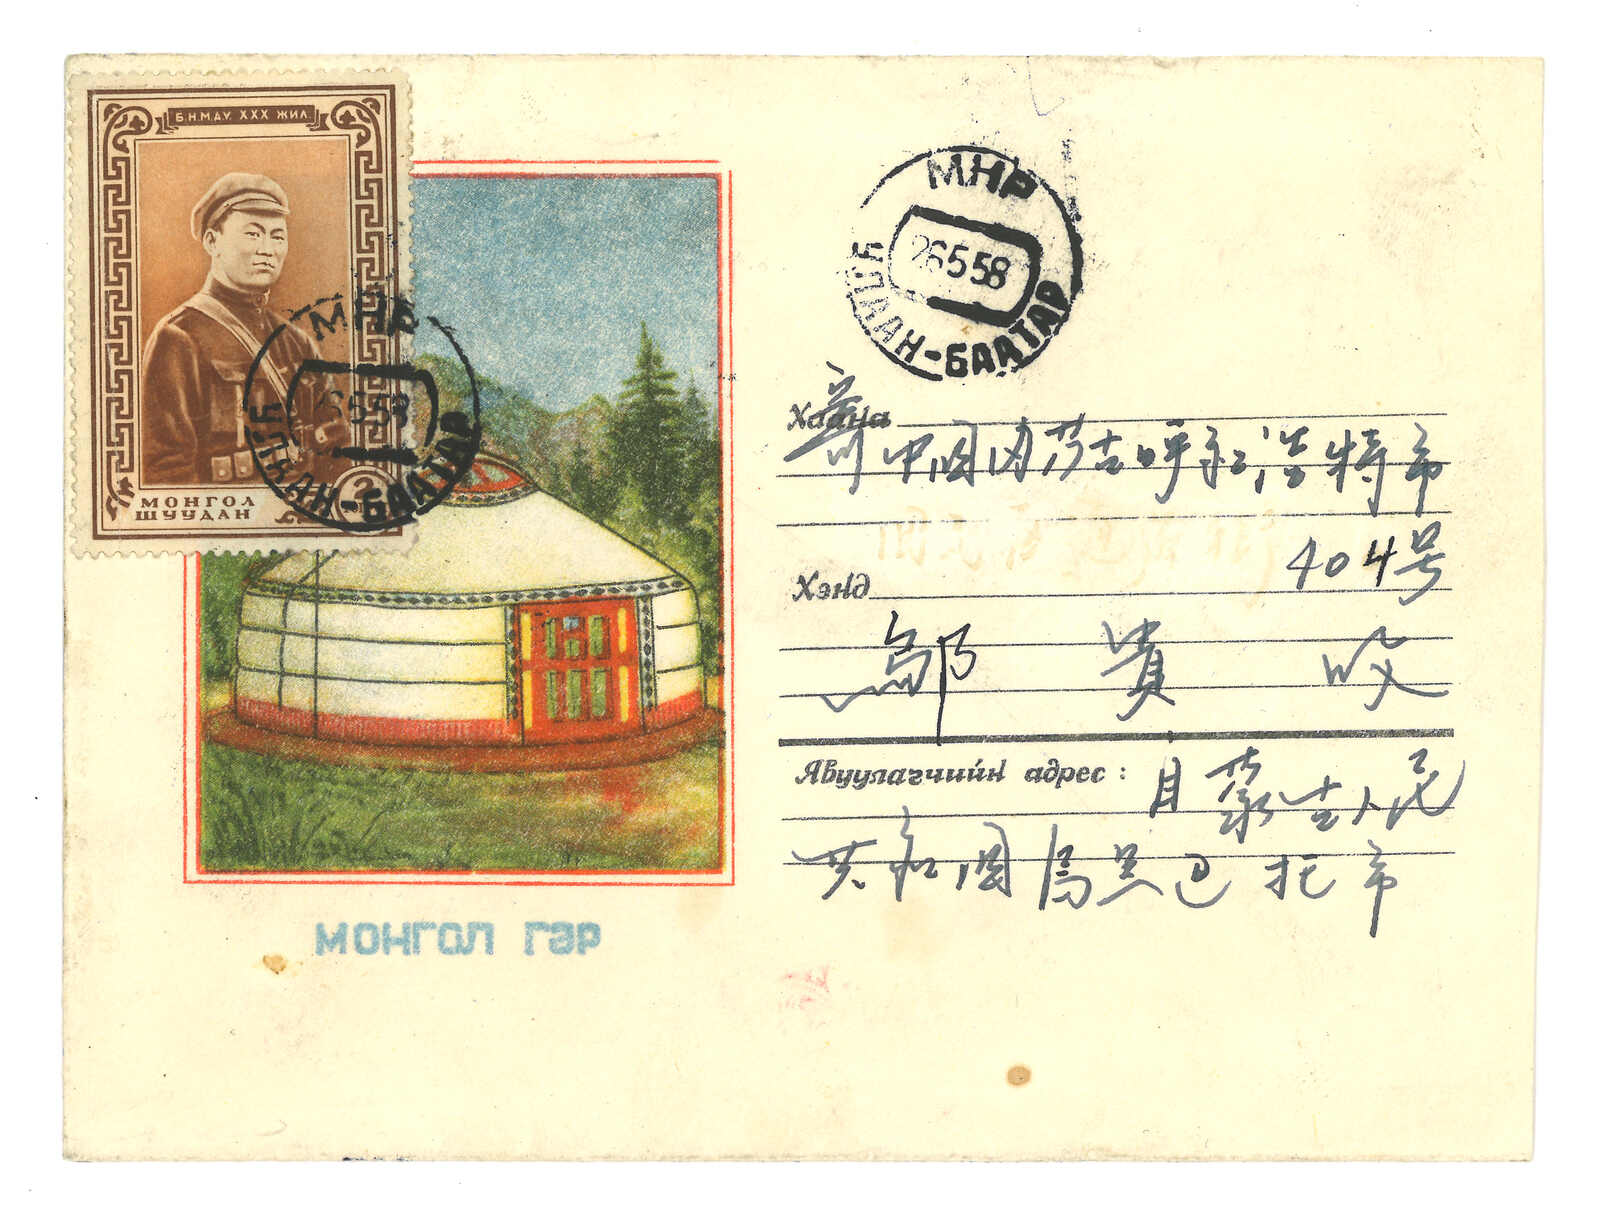 Б.Н.М.А.У. XXX ЖИЛ
МОНГОЛ
ШУУДАН
2
МНР
26 5 58
УЛААН-БААТАР
МНР
26 5 58
УЛААН-БААТАР
МОНГОЛ ГЭР
Хаана
寄中国内蒙古呼和浩特市
404号
Хэнд
鄔 貴
Явуулагчийн адрес: 自蒙古人民
共和国烏兰巴托市